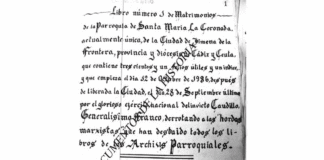 1
Libro número 1 de Matrimonios
de la Parroquia de Santa María La Coronada,
actualmente única, de la Ciudad de Jimena de la
Frontera, provincia y diócesis de Cádiz y Ceuta,
que contiene trescientos y un folios útiles y un índice,
y que empieza el día 12 de Octubre de 1936, después
de liberada la Ciudad, el día 28 de Septiembre último
por el glorioso ejército nacional del invicto Caudillo
Generalísimo Franco, derrotando a las hordas
marxistas, que han destruido todos los li-
bros de los Archivos Parroquiales.
DOCUMENTO HISTORIA